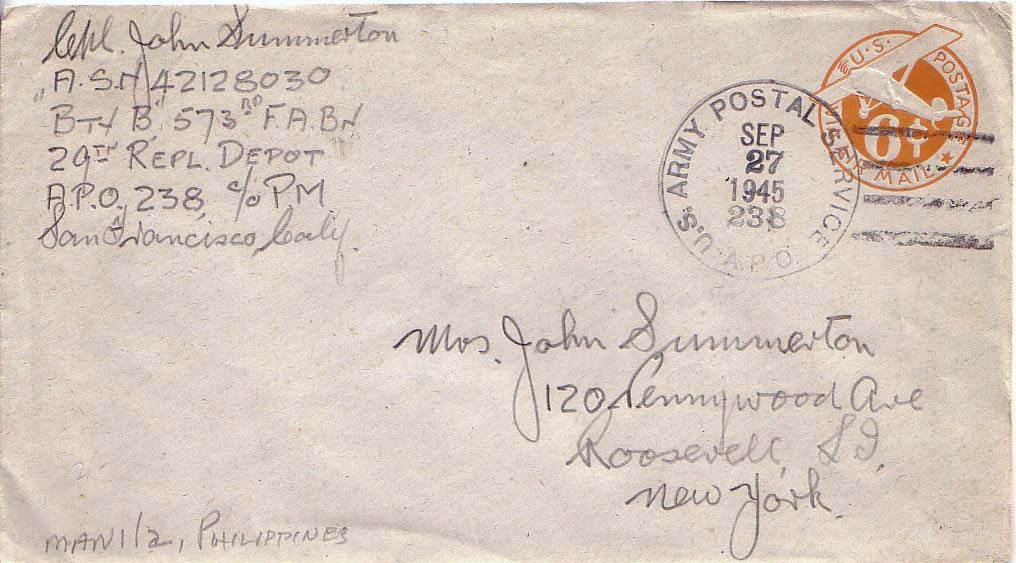 Cpl. John Summerton
A.S.N 42128030
Bty "B" 573RD F.A.BN
29TH REPL. DEPOT
A.P.O. 238, c/o P.M
San Francisco, Calif.
U.S. POSTAGE
6¢
VIA AIR MAIL
U.S. ARMY POSTAL SERVICE
SEP
27
1945
238
A.P.O.
Mrs. John Summerton
120 Pennywood Ave
Roosevelt, L.I.
New York.
MANILA, PHILIPPINES